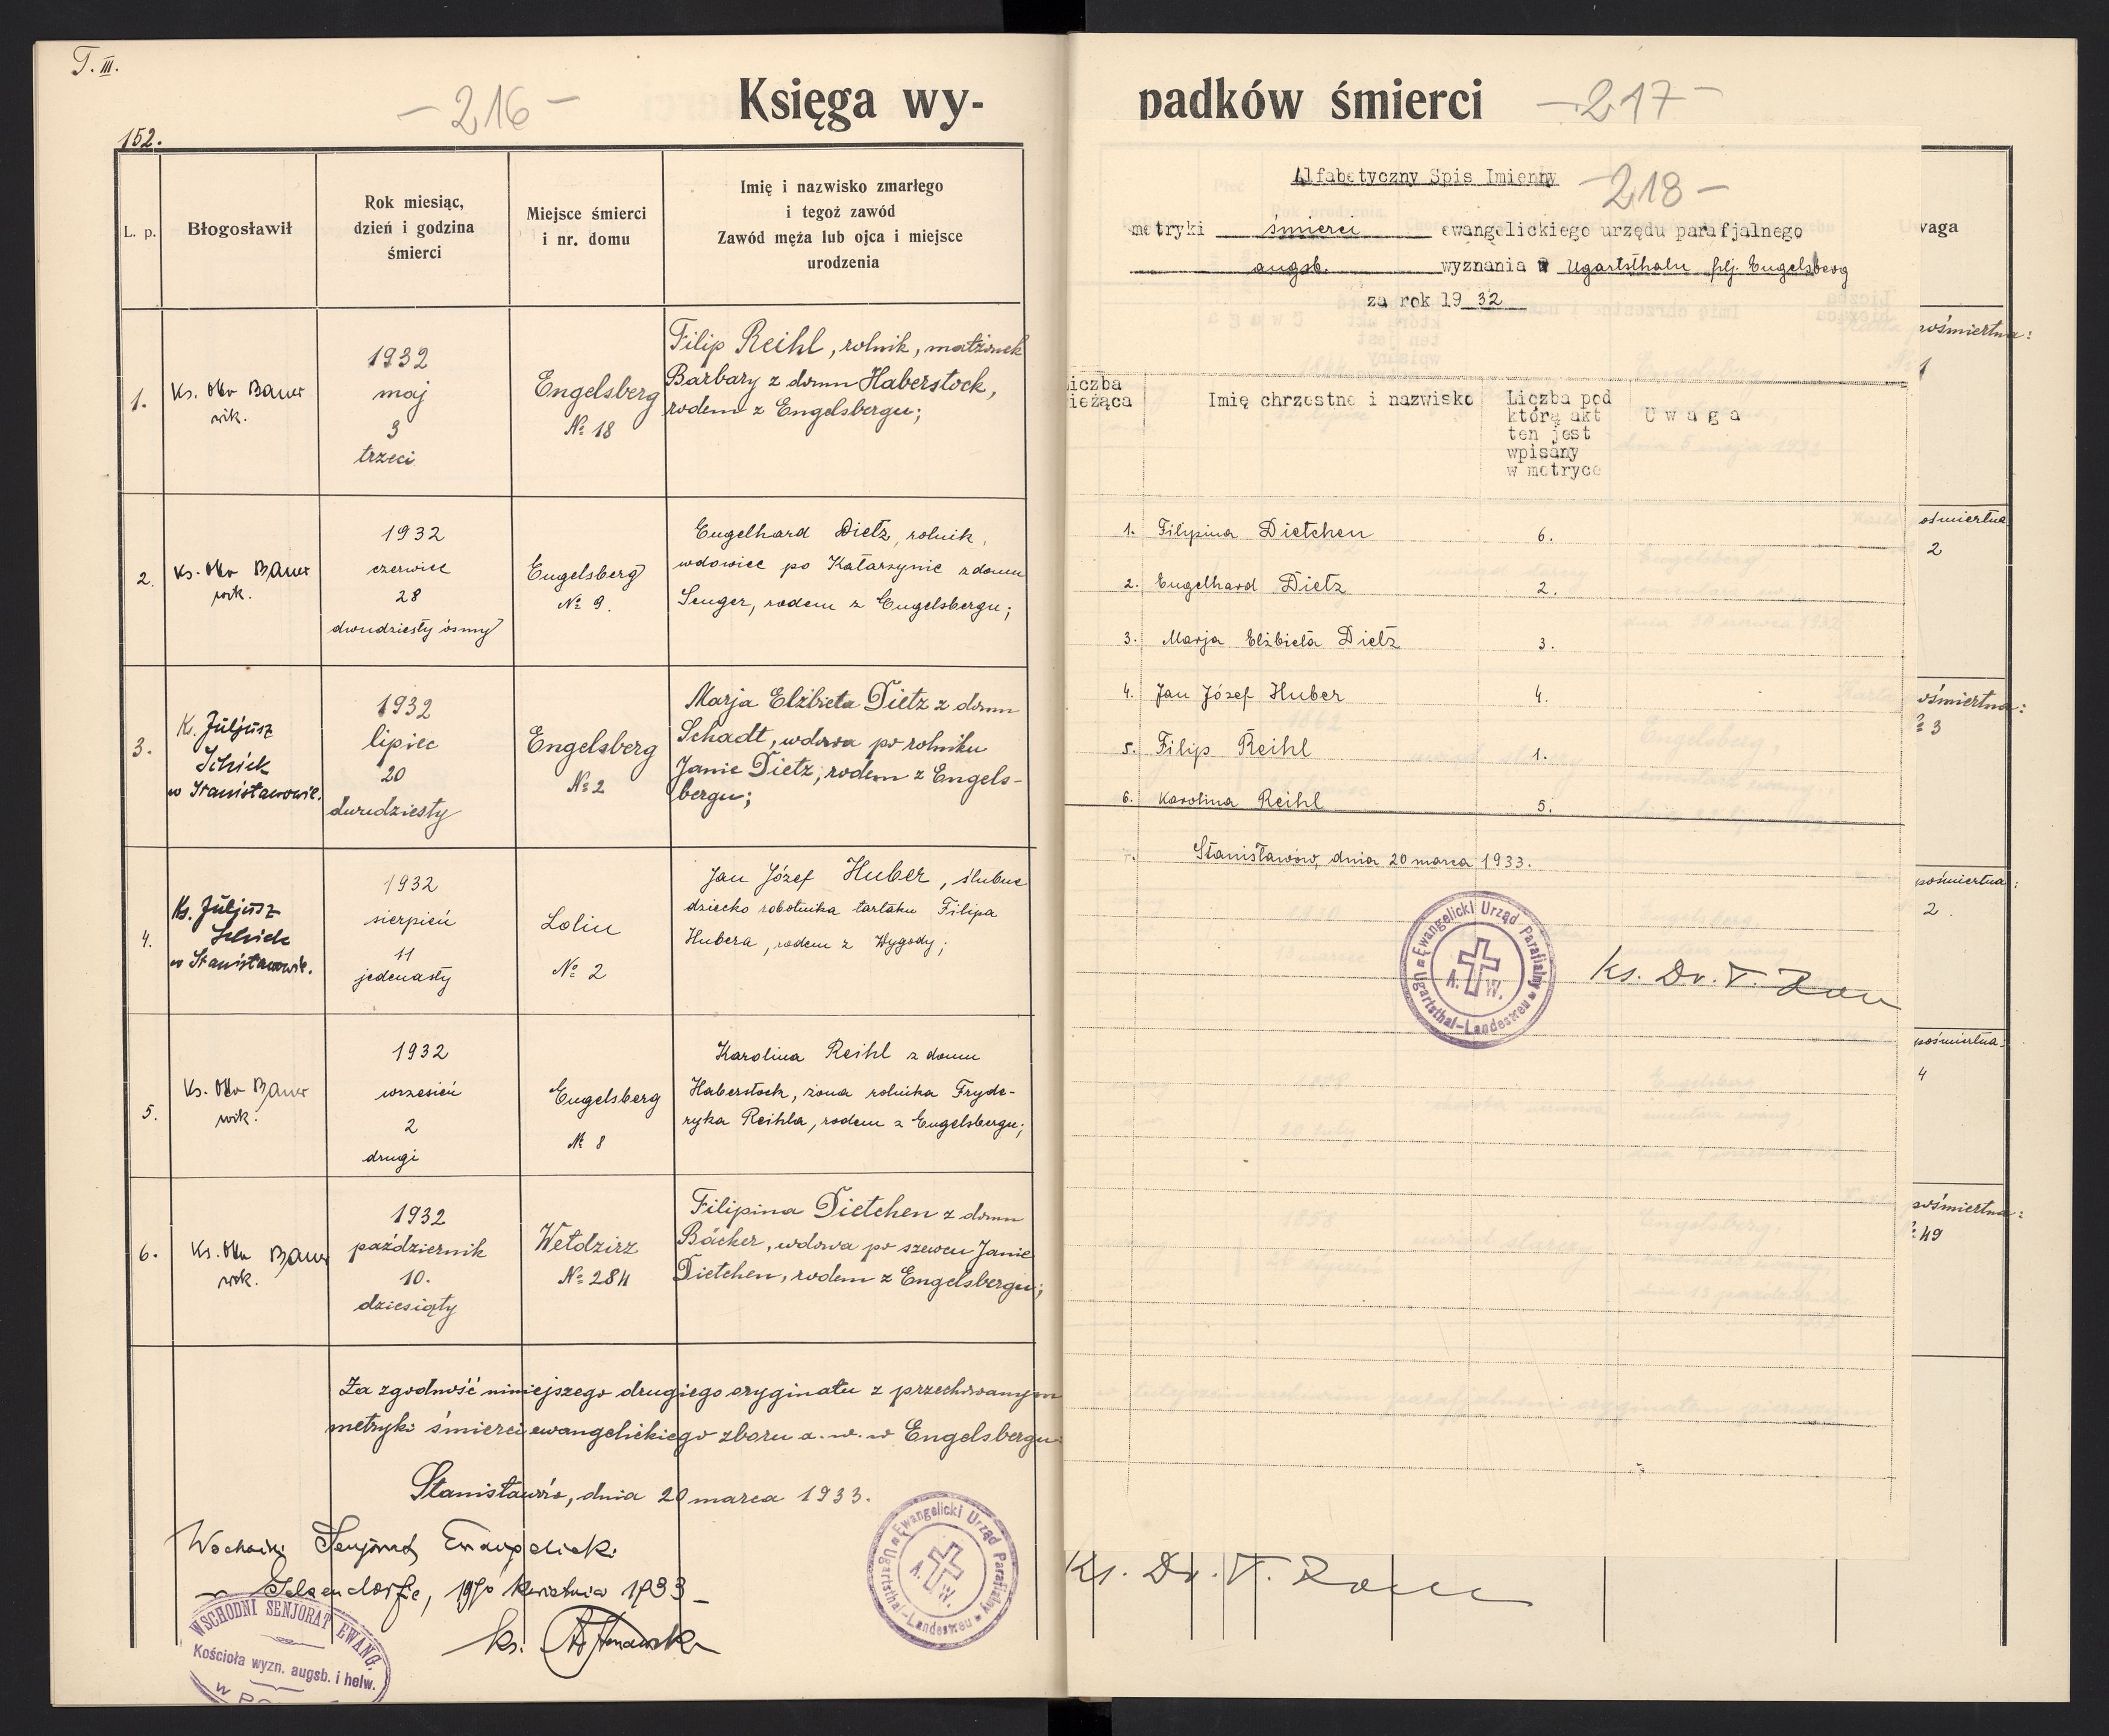 T. III.
- 216 -
Księga wy-
152.
L. p.
Błogosławił
Rok miesiąc,
dzień i godzina
śmierci
Miejsce śmierci
i nr. domu
Imię i nazwisko zmarłego
i tegoż zawód
Zawód męża lub ojca i miejsce
urodzenia
1.
Ks. Otto Bauer
wik.
1932
maj
3
trzeci
Engelsberg
№ 18
Filip Reihl, rolnik, małżonek
Barbary z domu Haberstock,
rodem z Engelsbergu;
2.
Ks. Otto Bauer
wik.
1932
czerwiec
28
dwudziesty ósmy
Engelsberg
№ 9.
Engelhard Dietz, rolnik,
wdowiec po Katarzynie z domu
Senger, rodem z Engelsbergu;
3.
Ks. Juljusz
Schick
w Stanisławowie.
1932
lipiec
20
dwudziesty
Engelsberg
№ 2
Marja Elżbieta Dietz z domu
Schadt, wdowa po rolniku
Janie Dietz, rodem z Engels-
bergu;
4.
Ks. Juljusz
Schick
w Stanisławowie.
1932
sierpień
11
jedenasty
Lolin
№ 2
Jan Józef Huber, ślubne
dziecko robotnika tartaku Filipa
Hubera, rodem z Wygody;
5.
Ks. Otto Bauer
wik.
1932
wrzesień
2
drugi
Engelsberg
№ 8
Karolina Reihl z domu
Haberstock, żona rolnika Fryde-
ryka Reihla, rodem z Engelsbergu;
6.
Ks. Otto Bauer
wik.
1932
październik
10.
dziesiąty
Wełdzirz
№ 284
Filipina Dietchen z domu
Bäcker, wdowa po szewcu Janie
Dietchen, rodem z Engelsbergu;
Za zgodność niniejszego drugiego oryginału z przechowanym
metryki śmierci ewangelickiego zboru a. w. w Engelsbergu:
Stanisławów, dnia 20 marca 1933.
Wschodni Senjorat Ewangelicki
Gelsendorf, 19go kwietnia 1933
ks.
WSCHODNI SENJORAT EWANG.
Kościoła wyzn. augsb. i helw.
w
Ewangelicki Urząd Parafialny
A. W.
Ugartsthal-Landestreu
padków śmierci
- 217 -
Alfabetyczny Spis Imienny
- 218 -
metryki śmierci ewangelickiego urzędu parafjalnego
augsb. wyznania w Ugartsthalu filj. Engelsberg
za rok 19 32
iczba
ieżąca
Imię chrzestne i nazwisko
Liczba pod
którą akt
ten jest
wpisany
w metryce
Uwaga
1. Filipina Dietchen 6.
2. Engelhard Dietz 2.
3. Marja Elżbieta Dietz 3.
4. Jan Józef Huber 4.
5. Filip Reihl 1.
6. Karolina Reihl 5.
Stanisławów, dnia 20 marca 1933.
Ewangelicki Urząd Parafialny
A. W.
Ugartsthal-Landestreu
Ks. Dr. T. Zöckler
waga
ośmiertna:
1
ośmiertna
2
ośmiertna:
№ 3
pośmiertna:
2.
pośmiertna:
4
pośmiertna:
№ 49
Ks. Dr. T.